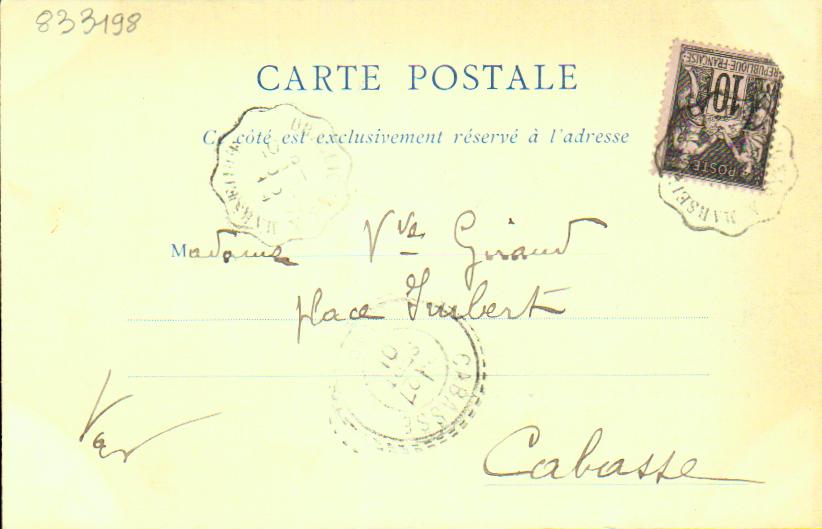 833198
CARTE POSTALE
Ce côté est exclusivement réservé à l'adresse
RÉPUBLIQUE FRANÇAISE
10
POSTES
MARSEI
Madame Vve Giraud
place Imbert
CABASSE
27
01
Var
Cabasse